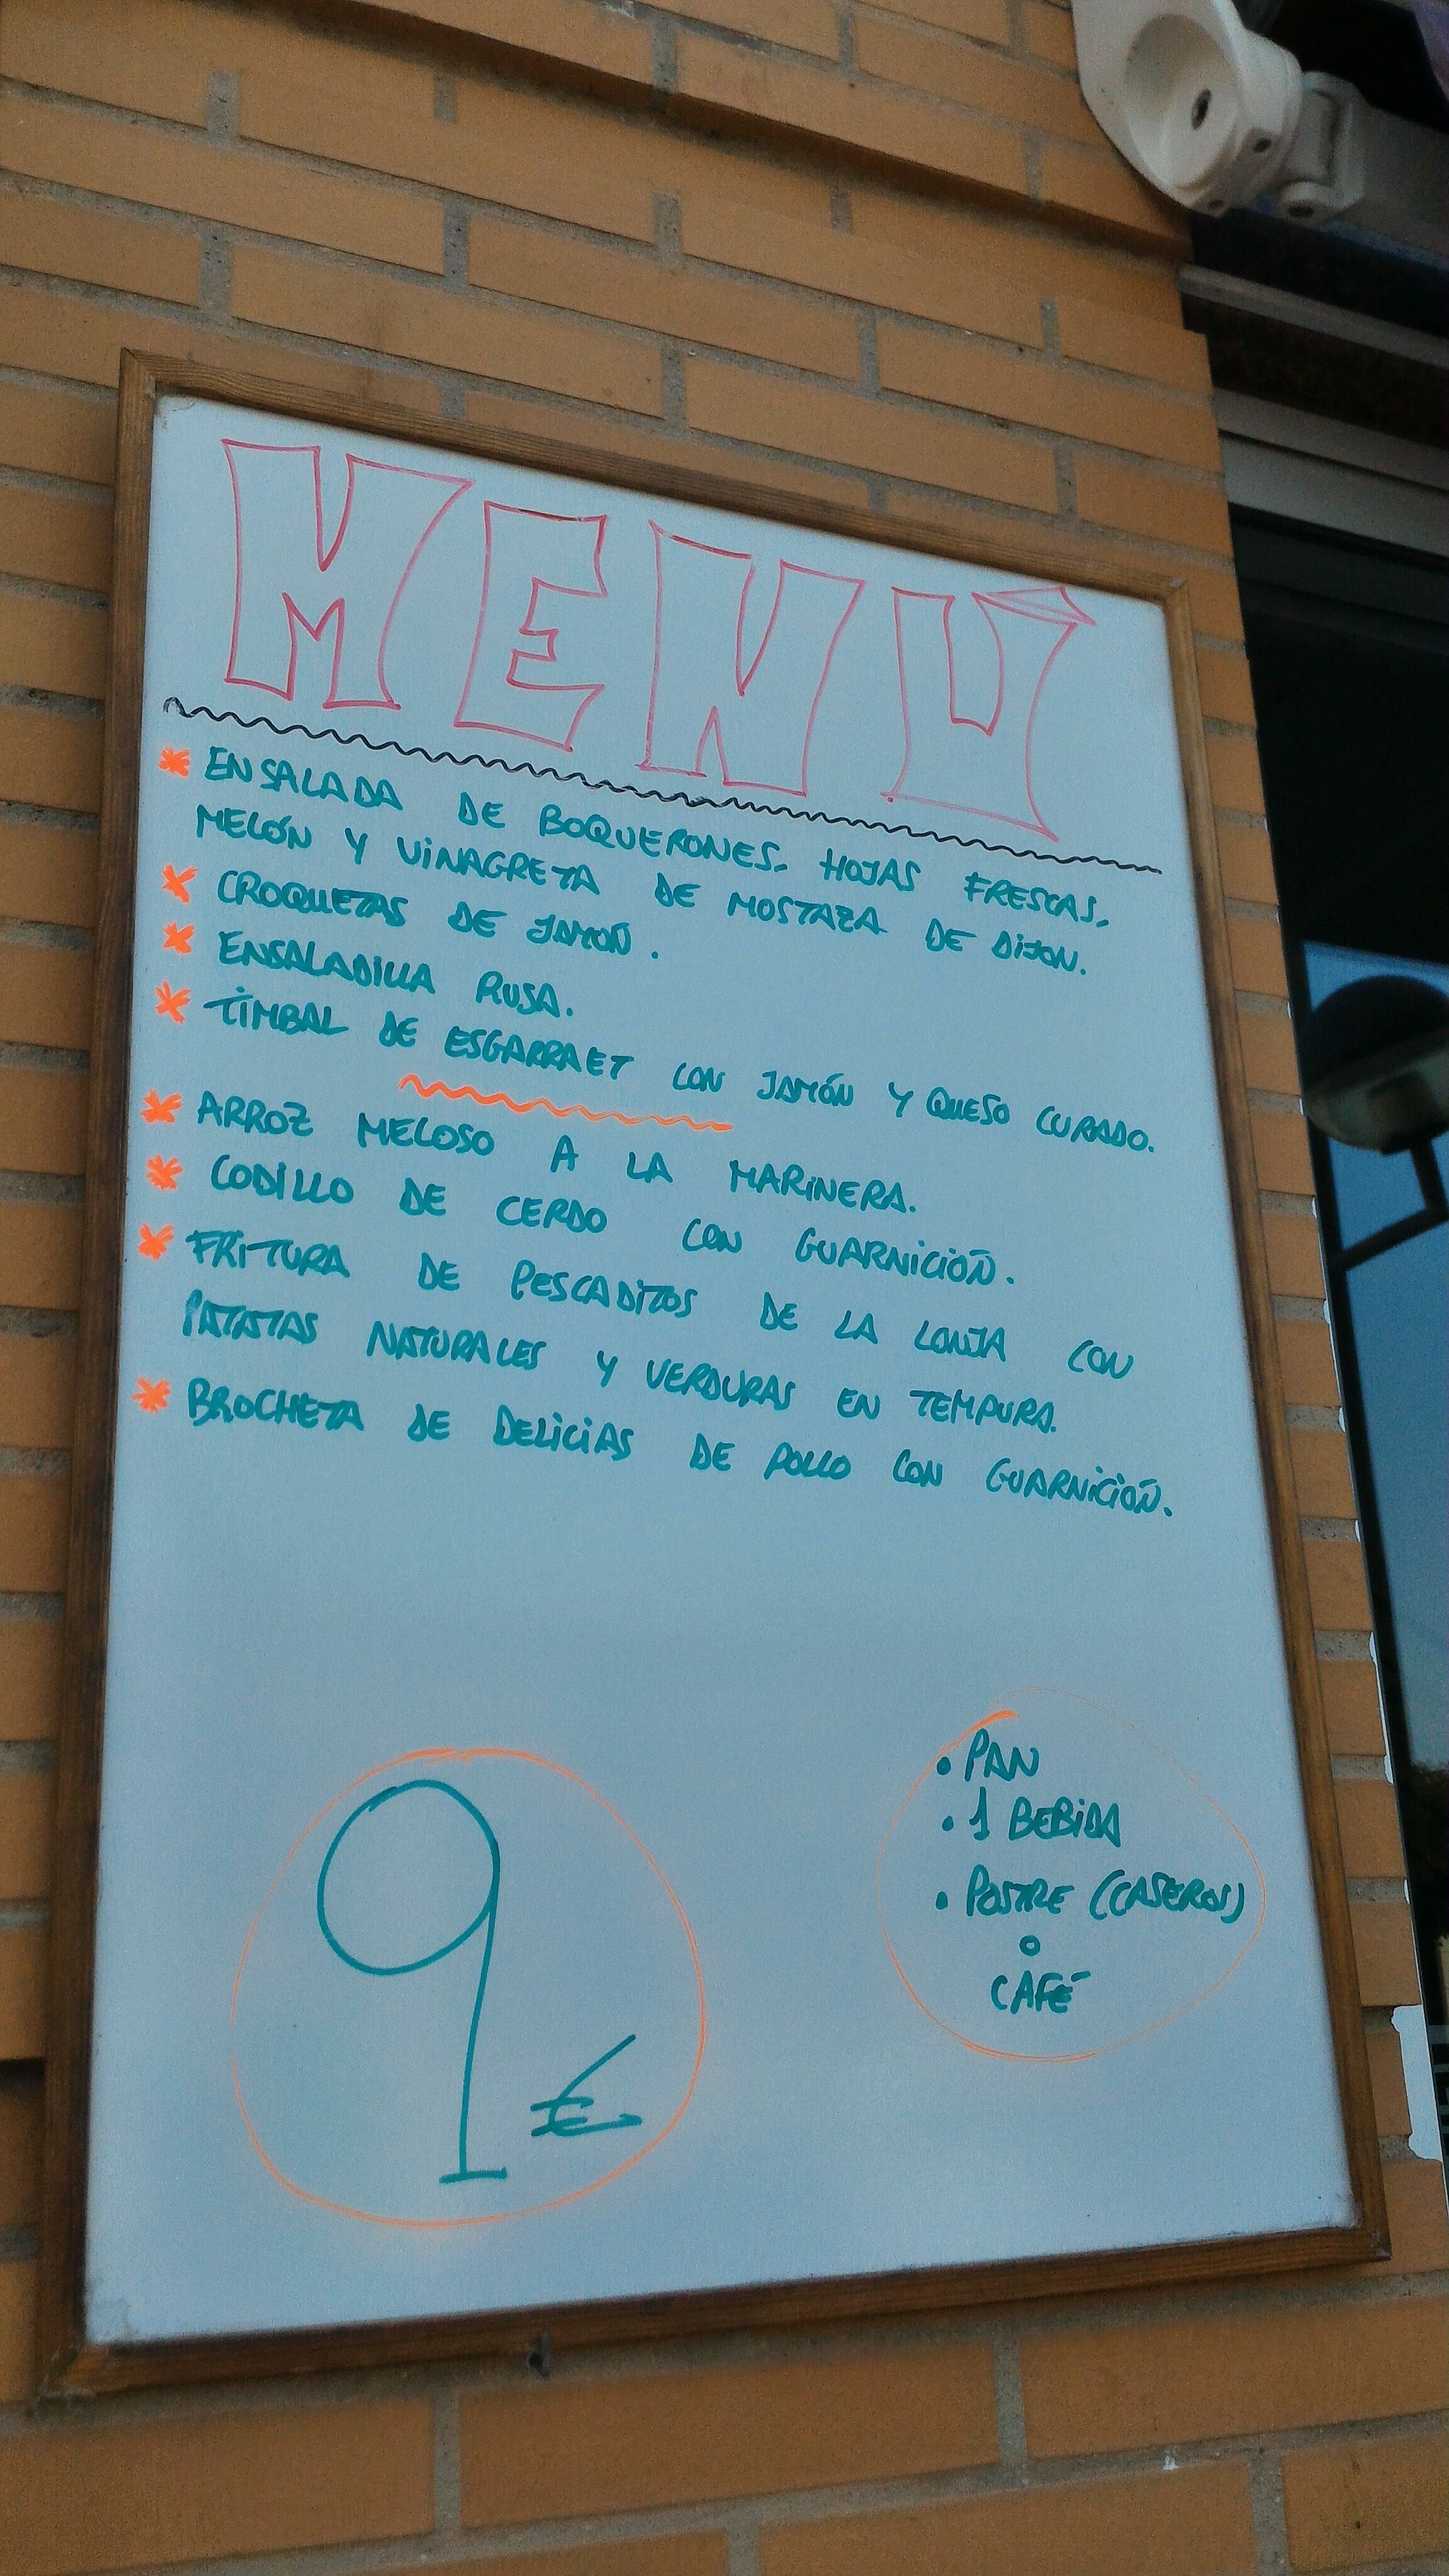 MENÚ
* ENSALADA DE BOQUERONES, HOJAS FRESCAS,
MELÓN Y VINAGRETA DE MOSTAZA DE DIJON.
* CROQUETAS DE JAMÓN.
* ENSALADILLA RUSA.
* TIMBAL DE ESGARRAET CON JAMÓN Y QUESO CURADO.
* ARROZ MELOSO A LA MARINERA.
* CODILLO DE CERDO CON GUARNICIÓN.
* FRITURA DE PESCADITOS DE LA LONJA CON
PATATAS NATURALES Y VERDURAS EN TEMPURA.
* BROCHETA DE DELICIAS DE POLLO CON GUARNICIÓN.
9 €
• PAN
• 1 BEBIDA
• POSTRE (CASEROS)
O
CAFÉ